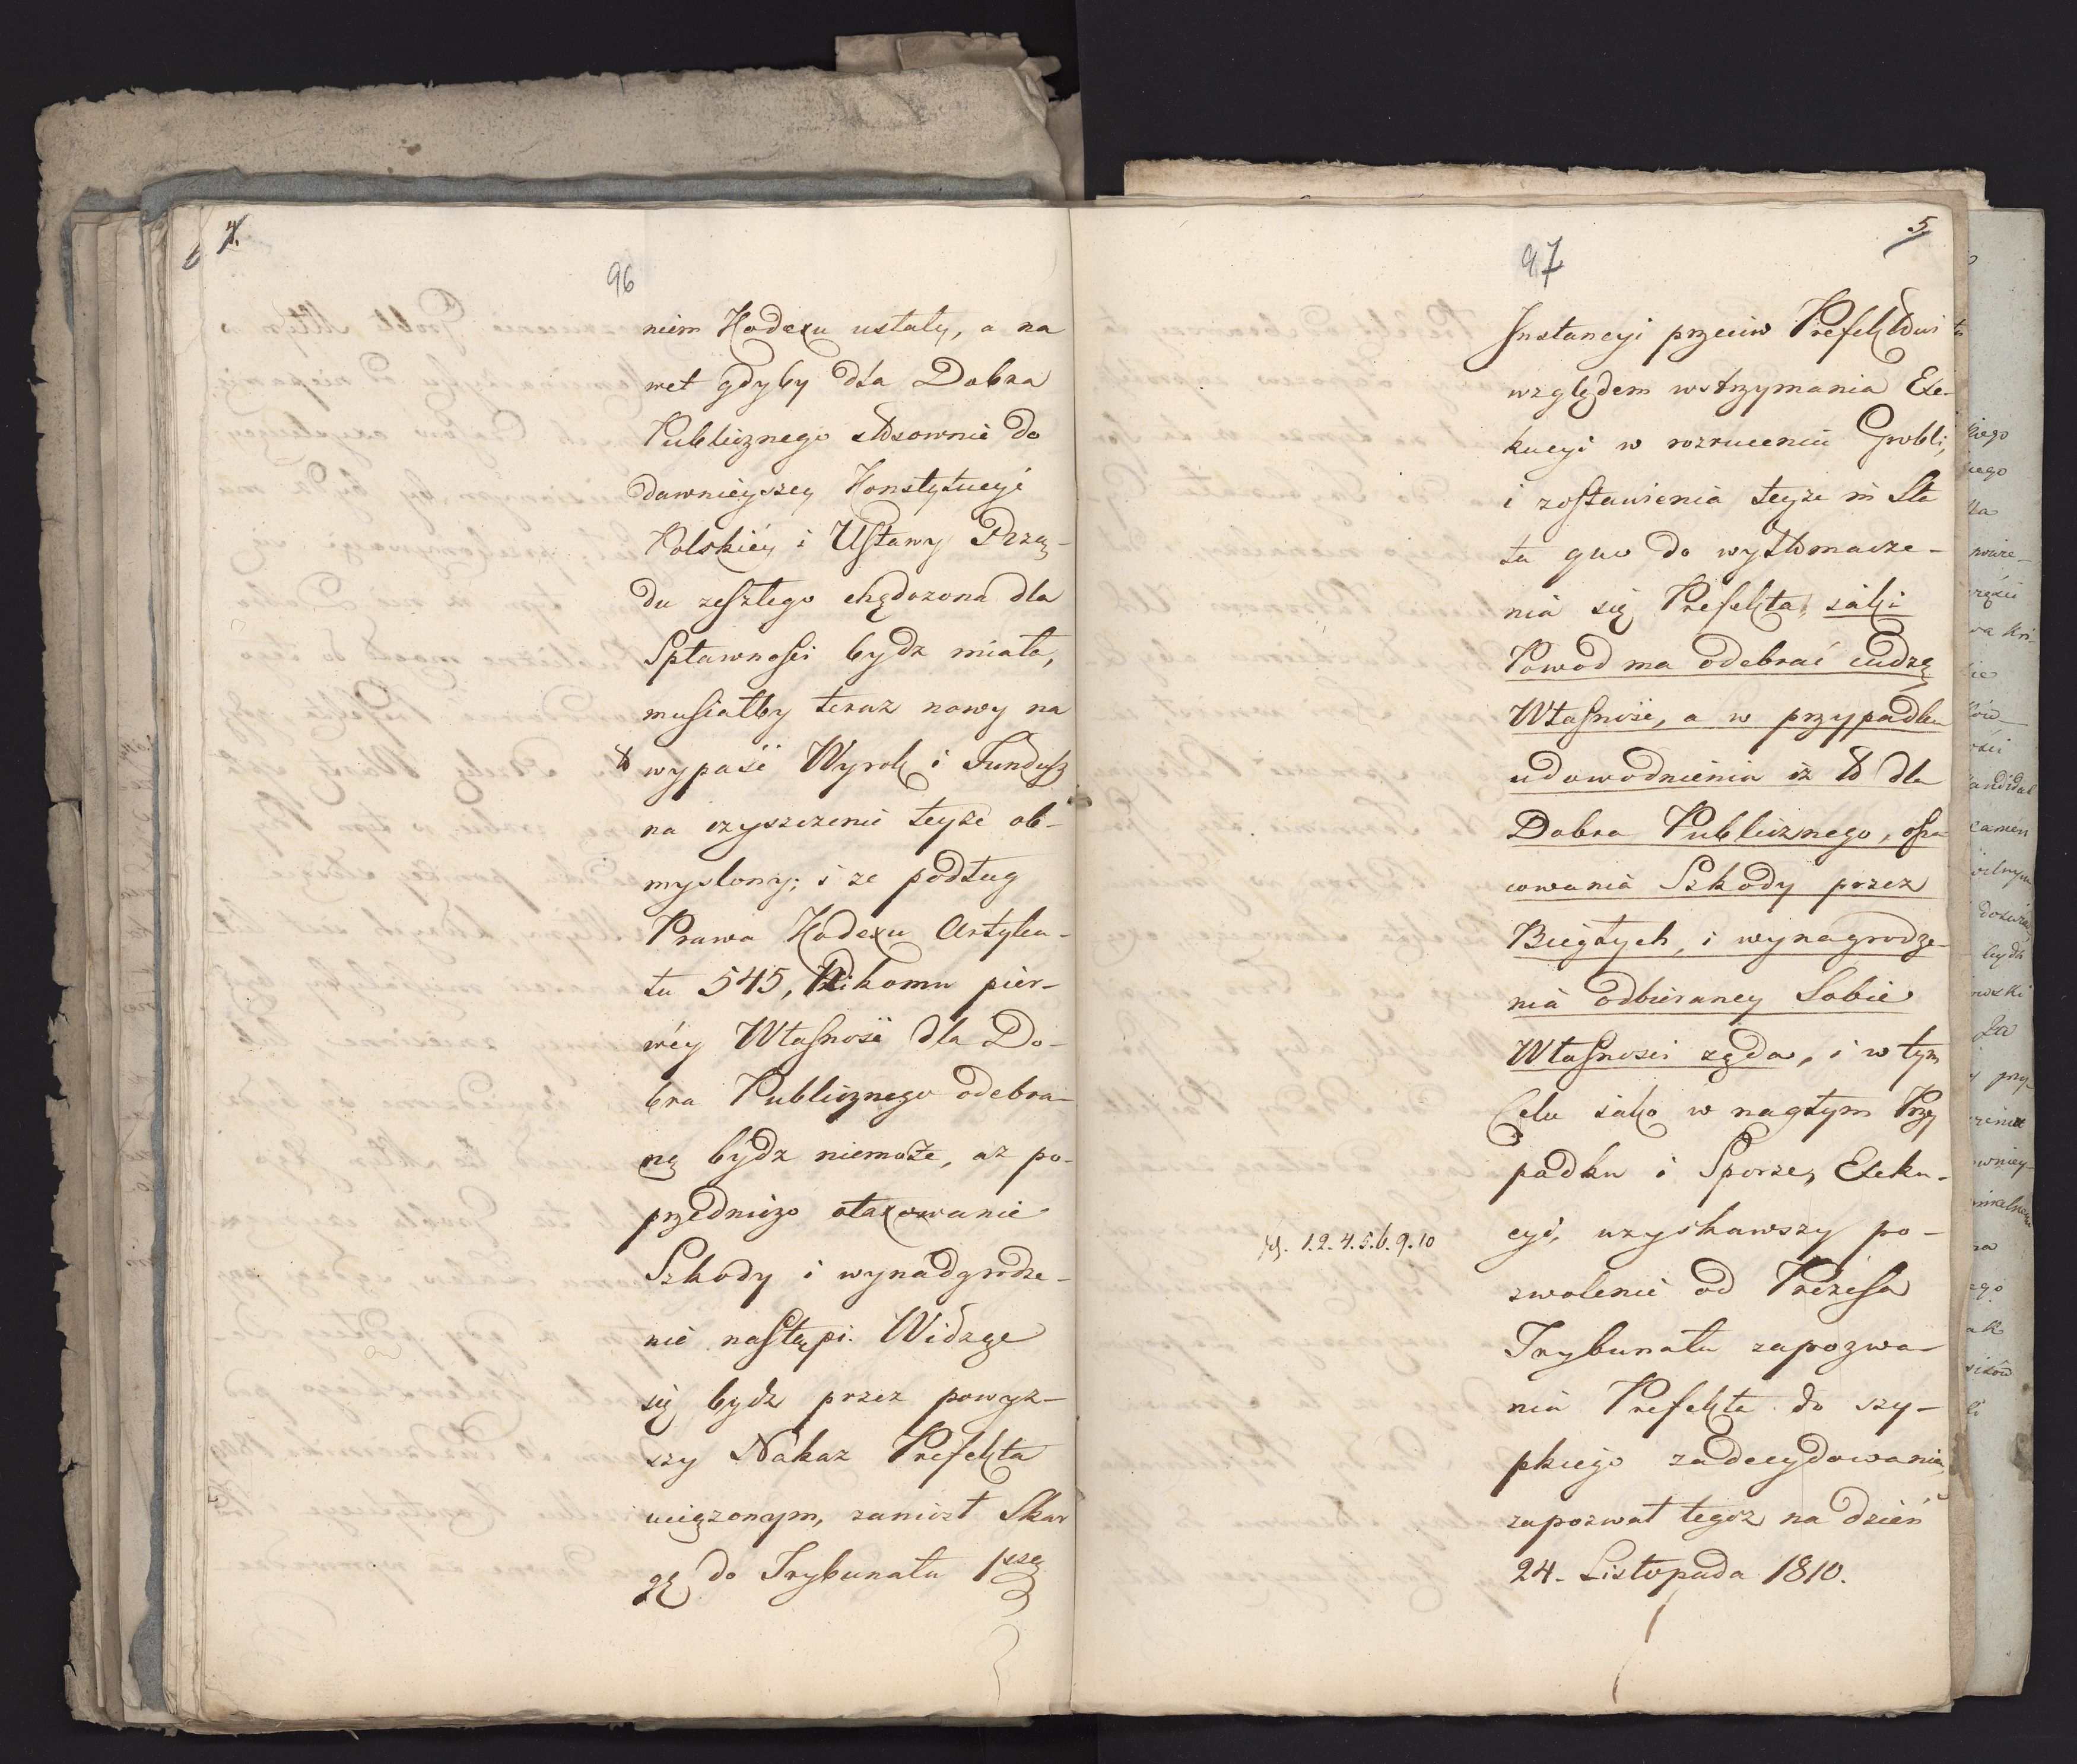 4.
6
96
niem Kodexu ustały, a na
wet gdyby dla Dobra
Publicznego stosownie do
dawnieyszey Konstytucyi
Polskiéy i Ustawy Rzą-
du zeszłego chędożona dla
Spławności bydz miała,
musiałby teraz nowy na
to wypaść Wyrok i Fundusz
na czyszczenie teyże ob-
myslony; i ze podług
Prawa Kodexu Artyku-
łu 545, Nikomu pier-
wéy Własność dla Do-
bra Publicznego odebra-
ną bydz niemoże, aż po-
przedniczo otaxowanie
Szkody i wynadgrodze-
nie nastąpi. Widząc
się bydz przez powyż-
szy Nakaz Prefekta
uciążonym, zaniósł Skar
gę do Trybunału 1szey
5
97
Instancyi przeciw Prefektowi
względem wstrzymania Exe-
kucyi w rozrucenia Grobli,
i zostawienia teyże in Sta
tu quo do wytłomacze-
nia się Prefekta, jaki
Powod ma odebrać cudzą
Własność, a w przypadku
udowodnienia iż to dla
Dobra Publicznego, osza-
cowania Szkody przez
Biegłych, i wynagrodze-
nia odbieraney Sobie
Własności żąda, i w tym
Celu jako w nagłym Przy
padku i Sporze, Exeku-
cyi, uzyskawszy po-
1.2.4.5.6.9.10
zwolenie od Prezesa
Trybunału zapozwa-
nia Prefekta do szy-
pkiego zadecydowania,
zapozwał tegoż na dzień
24. Listopada 1810.